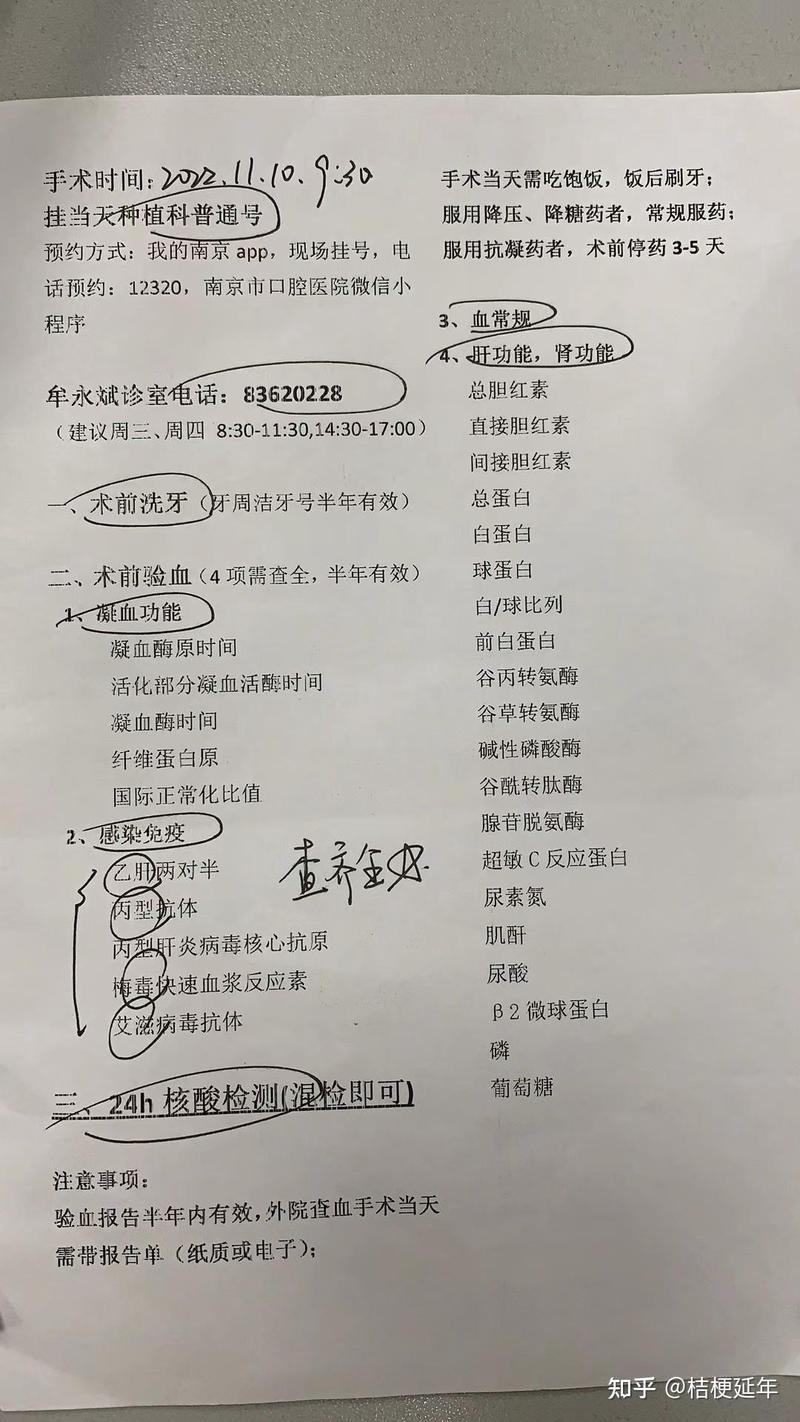 手术时间：2022.11.10.9:30
挂当天种植科普通号
预约方式：我的南京 app，现场挂号，电
话预约：12320，南京市口腔医院微信小
程序
牟永斌诊室电话：83620228
（建议周三、周四 8:30-11:30,14:30-17:00）
一、术前洗牙（牙周洁牙号半年有效）
二、术前验血（4 项需查全，半年有效）
1、凝血功能
凝血酶原时间
活化部分凝血活酶时间
凝血酶时间
纤维蛋白原
国际正常化比值
2、感染免疫
乙肝两对半
丙型抗体
丙型肝炎病毒核心抗原
梅毒快速血浆反应素
艾滋病毒抗体
查齐全
三、24h 核酸检测(混检即可)
注意事项：
验血报告半年内有效，外院查血手术当天
需带报告单（纸质或电子）；
手术当天需吃饱饭，饭后刷牙；
服用降压、降糖药者，常规服药；
服用抗凝药者，术前停药 3-5 天
3、血常规
4、肝功能，肾功能
总胆红素
直接胆红素
间接胆红素
总蛋白
白蛋白
球蛋白
白/球比列
前白蛋白
谷丙转氨酶
谷草转氨酶
碱性磷酸酶
谷酰转肽酶
腺苷脱氨酶
超敏 C 反应蛋白
尿素氮
肌酐
尿酸
β2 微球蛋白
磷
葡萄糖
知乎 @桔梗延年